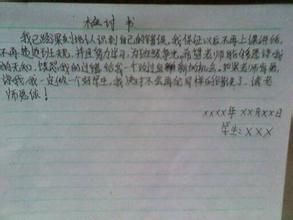 检讨书
我已经深刻地认识到自己的错误,我保证以后不再上课讲话
不再迟到旷课,并且努力学习,为班级争光,希望老师能够原谅我
的无知,饶恕我的过错,给我一个改过自新的机会,如果老师肯原
谅我,我一定做一个好学生,我决对不会再犯同样的错误了,请老
师恕信!
xxxx年xx月xx日
学生:xxx